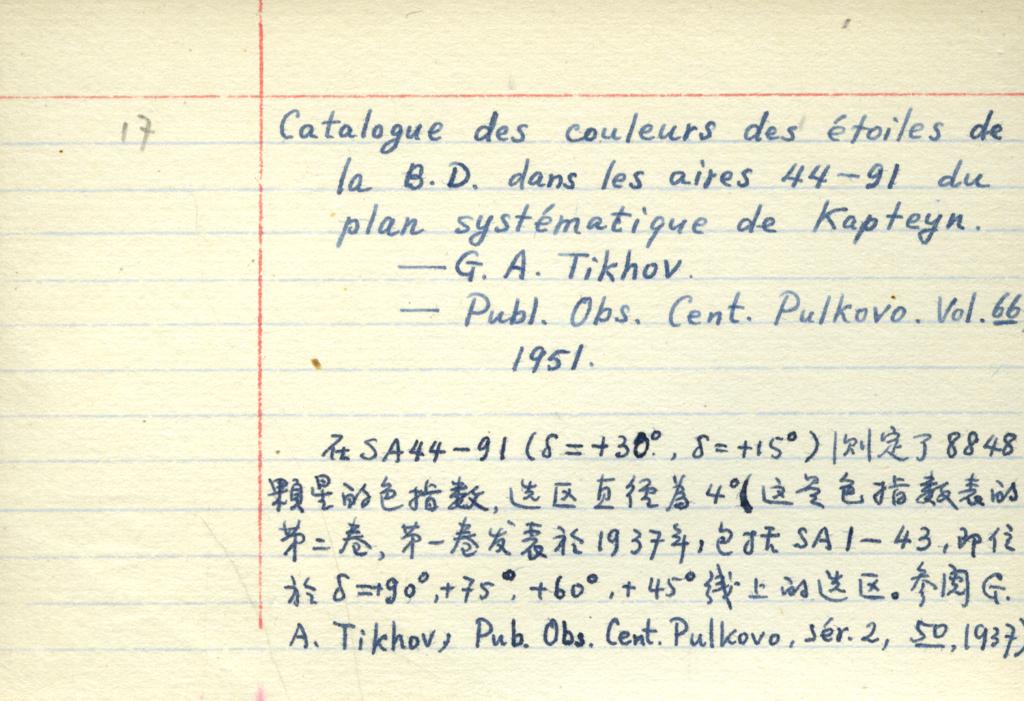 17
Catalogue des couleurs des étoiles de
la B.D. dans les aires 44-91 du
plan systématique de Kapteyn.
— G. A. Tikhov.
— Publ. Obs. Cent. Pulkovo. Vol. 66
1951.
在SA44-91(δ=+30°, δ=+15°)测定了8848
顆星的色指数,选区直徑為4°(这是色指数表的
第二卷,第一卷发表於1937年,包括SA1-43,即位
於δ=+90°,+75°,+60°,+45°线上的选区。参阅G.
A. Tikhov, Pub. Obs. Cent. Pulkovo, sér. 2, 50, 1937)